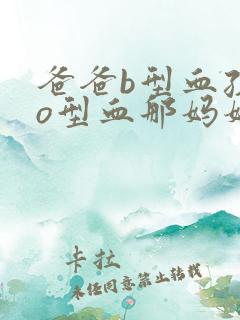 爸爸b型血
o型血那妈
卡拉
未经同意禁止转载